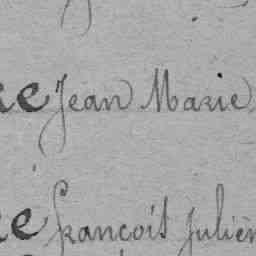 Jean Marie
François Julien